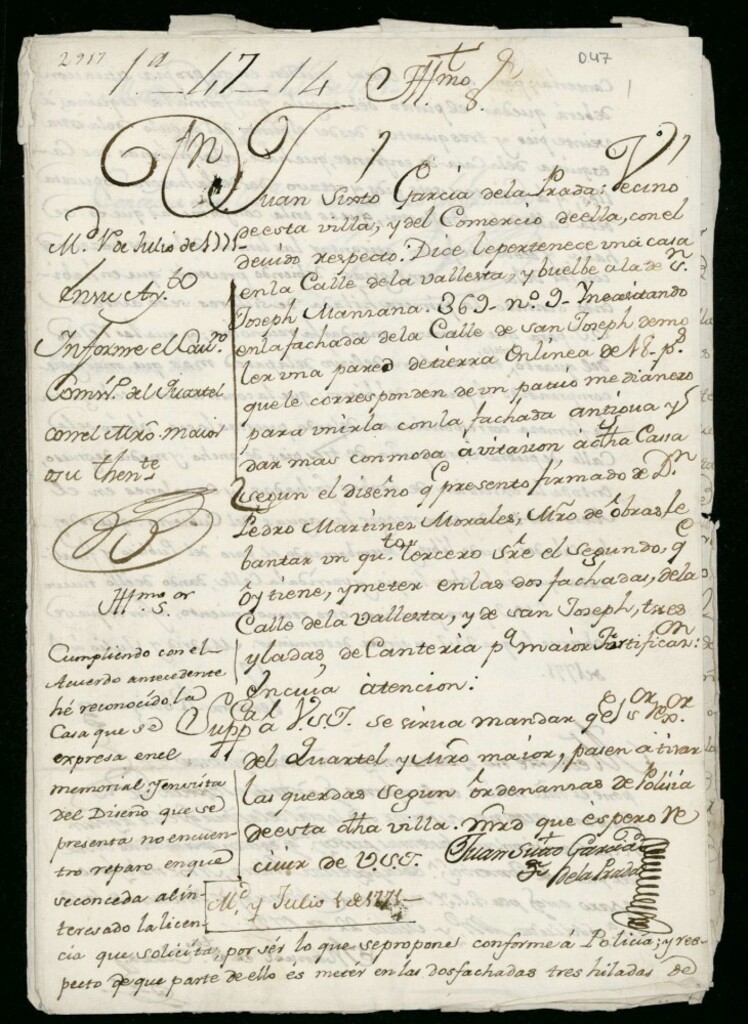 2917
1ª-47-14
D47
1
Illmo S.r
Juan Sixto Garcia dela Prada: Vecino
deesta villa, y del Comercio deella, conel
devido respecto: Dice lepertenece una casa
enla Calle dela vallesta, y buelbe alade S.n
Joseph Manzana. 369. n.º 9. Ynecesitando
enla fachada dela Calle de san Joseph demo
ler una pared detierra enlinea de 18. p.s
quele corresponden de un patio medianero
para unirla conla fachada antigua y
dar mas conmoda avitazion adha Cassa
segun el diseño q presento firmado de D.n
Pedro Martinez Morales, Mro de obras le
bantar un qu.to tercero sre el segundo, q
oy tiene, y meter enlas dos fachadas, dela
Calle dela Vallesta, y de san Joseph, tres
yladas, de Canteria p.a maior Fortifican.on:
Encuia atencion:
Supp.ca a V.S.I. se sirva mandar q el s.or
del Quartel y Mro maior, pasen a tirar
las querdas segun ordenanzas de Policia
deesta dha villa. Mrd que espero Re
civir de V.S.I.
Juan Sixto Garcia
dela Prada
M.d 1º de Julio de 1771
Ensu Ay.to
Informe el Cav.ro
Comis.º del Quartel
conel Mro. maior
o su thente
Illmo S.or
Cumpliendo con el
Acuerdo antecedente
hé reconocido la
Casa que se
expresa enel
memorial: Yenvista
del Diseño que se
presenta no encuen-
tro reparo en que
seconceda al in-
teresado la licen-
cia que solicita, por sér lo que sepropone conforme á Policia; y res-
pecto de que parte de ello és metér en las dos fachadas tres hiladas de
M.d y Julio 1 de 1771